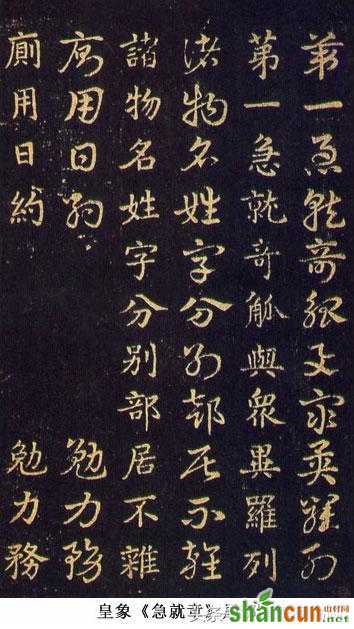 第一急就奇觚與衆異羅列
第一急就奇觚與衆異羅列
諸物名姓字分別部居不雜
諸物名姓字分別部居不雜
廁用日約 勉力務
廁用日約 勉力務
皇象《急就章》
shancun
山村网
.net